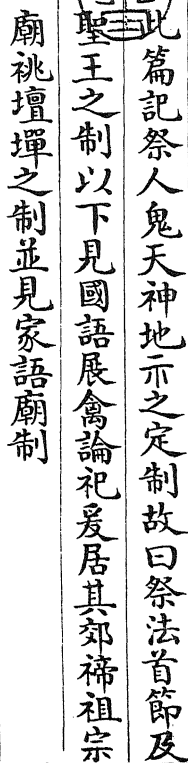 此篇記祭人鬼天神地示之定制故曰祭法首節及
聖王之制以下見國語展禽論祀爰居其郊禘祖宗
廟祧壇墠之制並見家語廟制